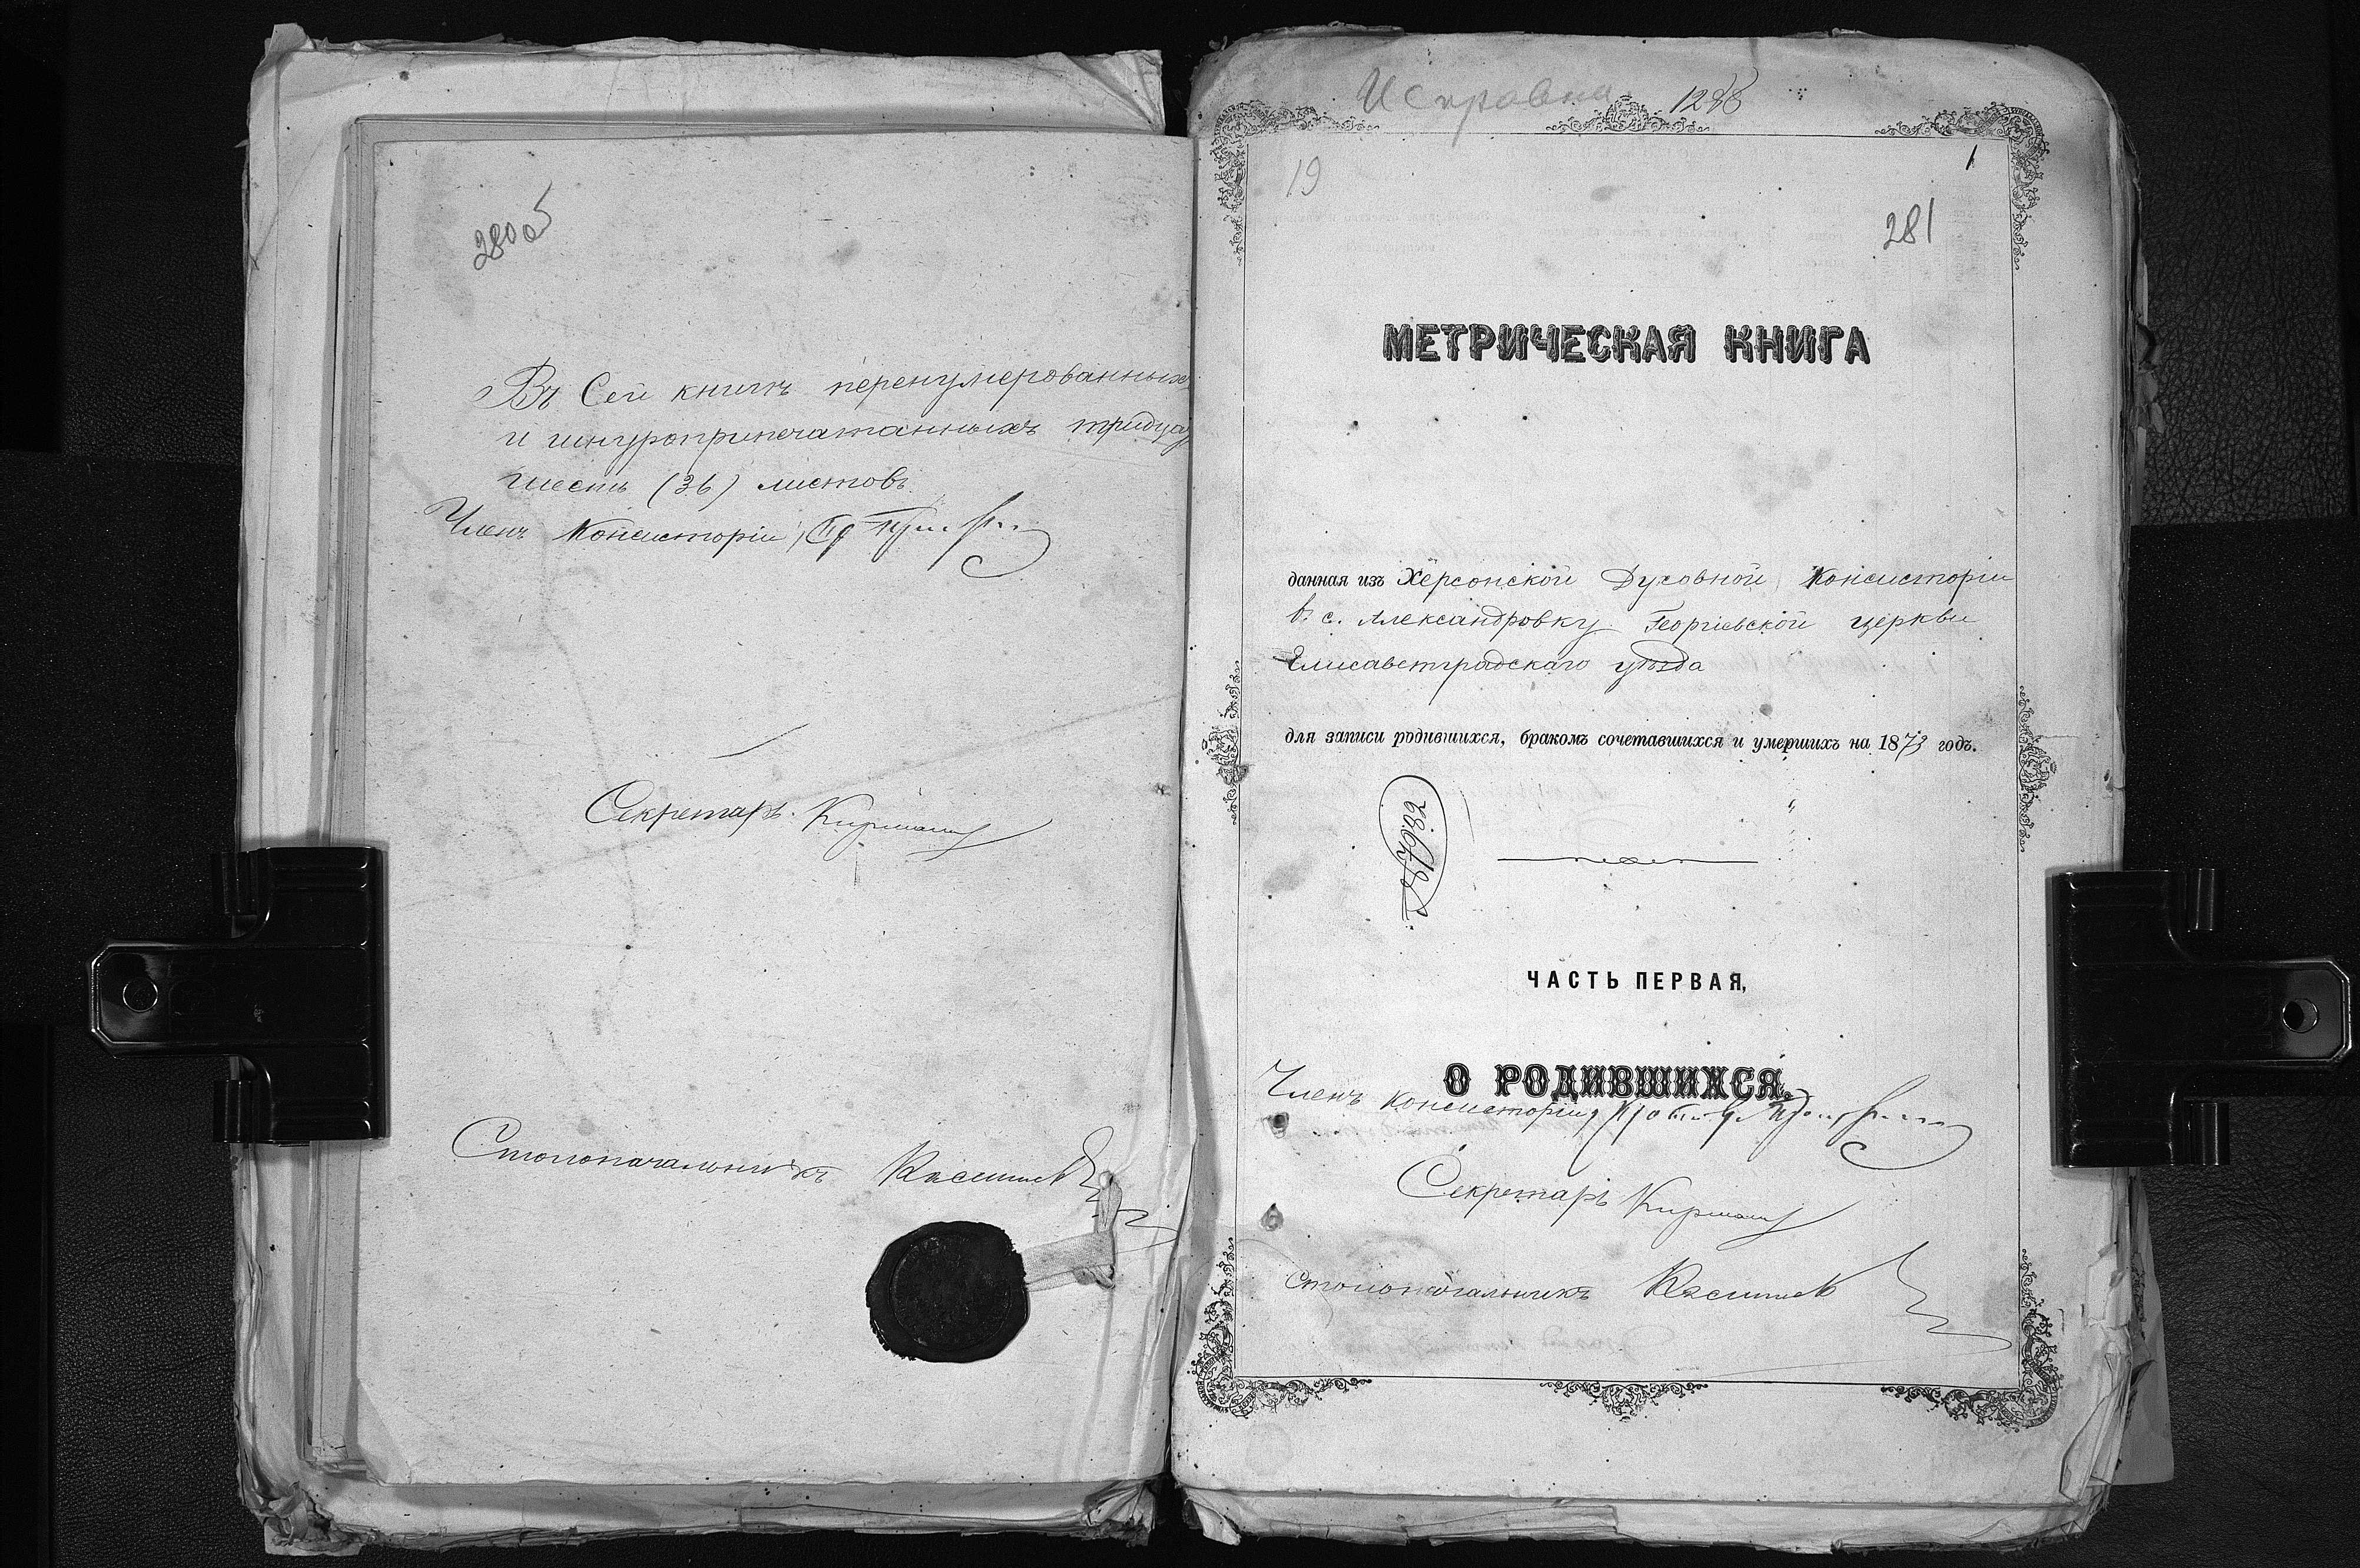 280 об
Въ Сей книгѣ перенумерованныхъ
и шнуроприпечатанныхъ тридца
шесть (36) листовъ
Членъ Консисторіи
Секретарь
Столоначальникъ
1288
19
1
281
МЕТРИЧЕСКАЯ КНИГА
данная изъ Херсонской Духовной Консисторіи
въ с. Александровку Георгіевской церкви
Елисаветградскаго уѣзда
для записи родившихся, бракомъ сочетавшихся и умершихъ на 1873 годъ.
ЧАСТЬ ПЕРВАЯ,
О РОДИВШИХСЯ.
Членъ Консисторіи
Секретарь
Столоначальникъ